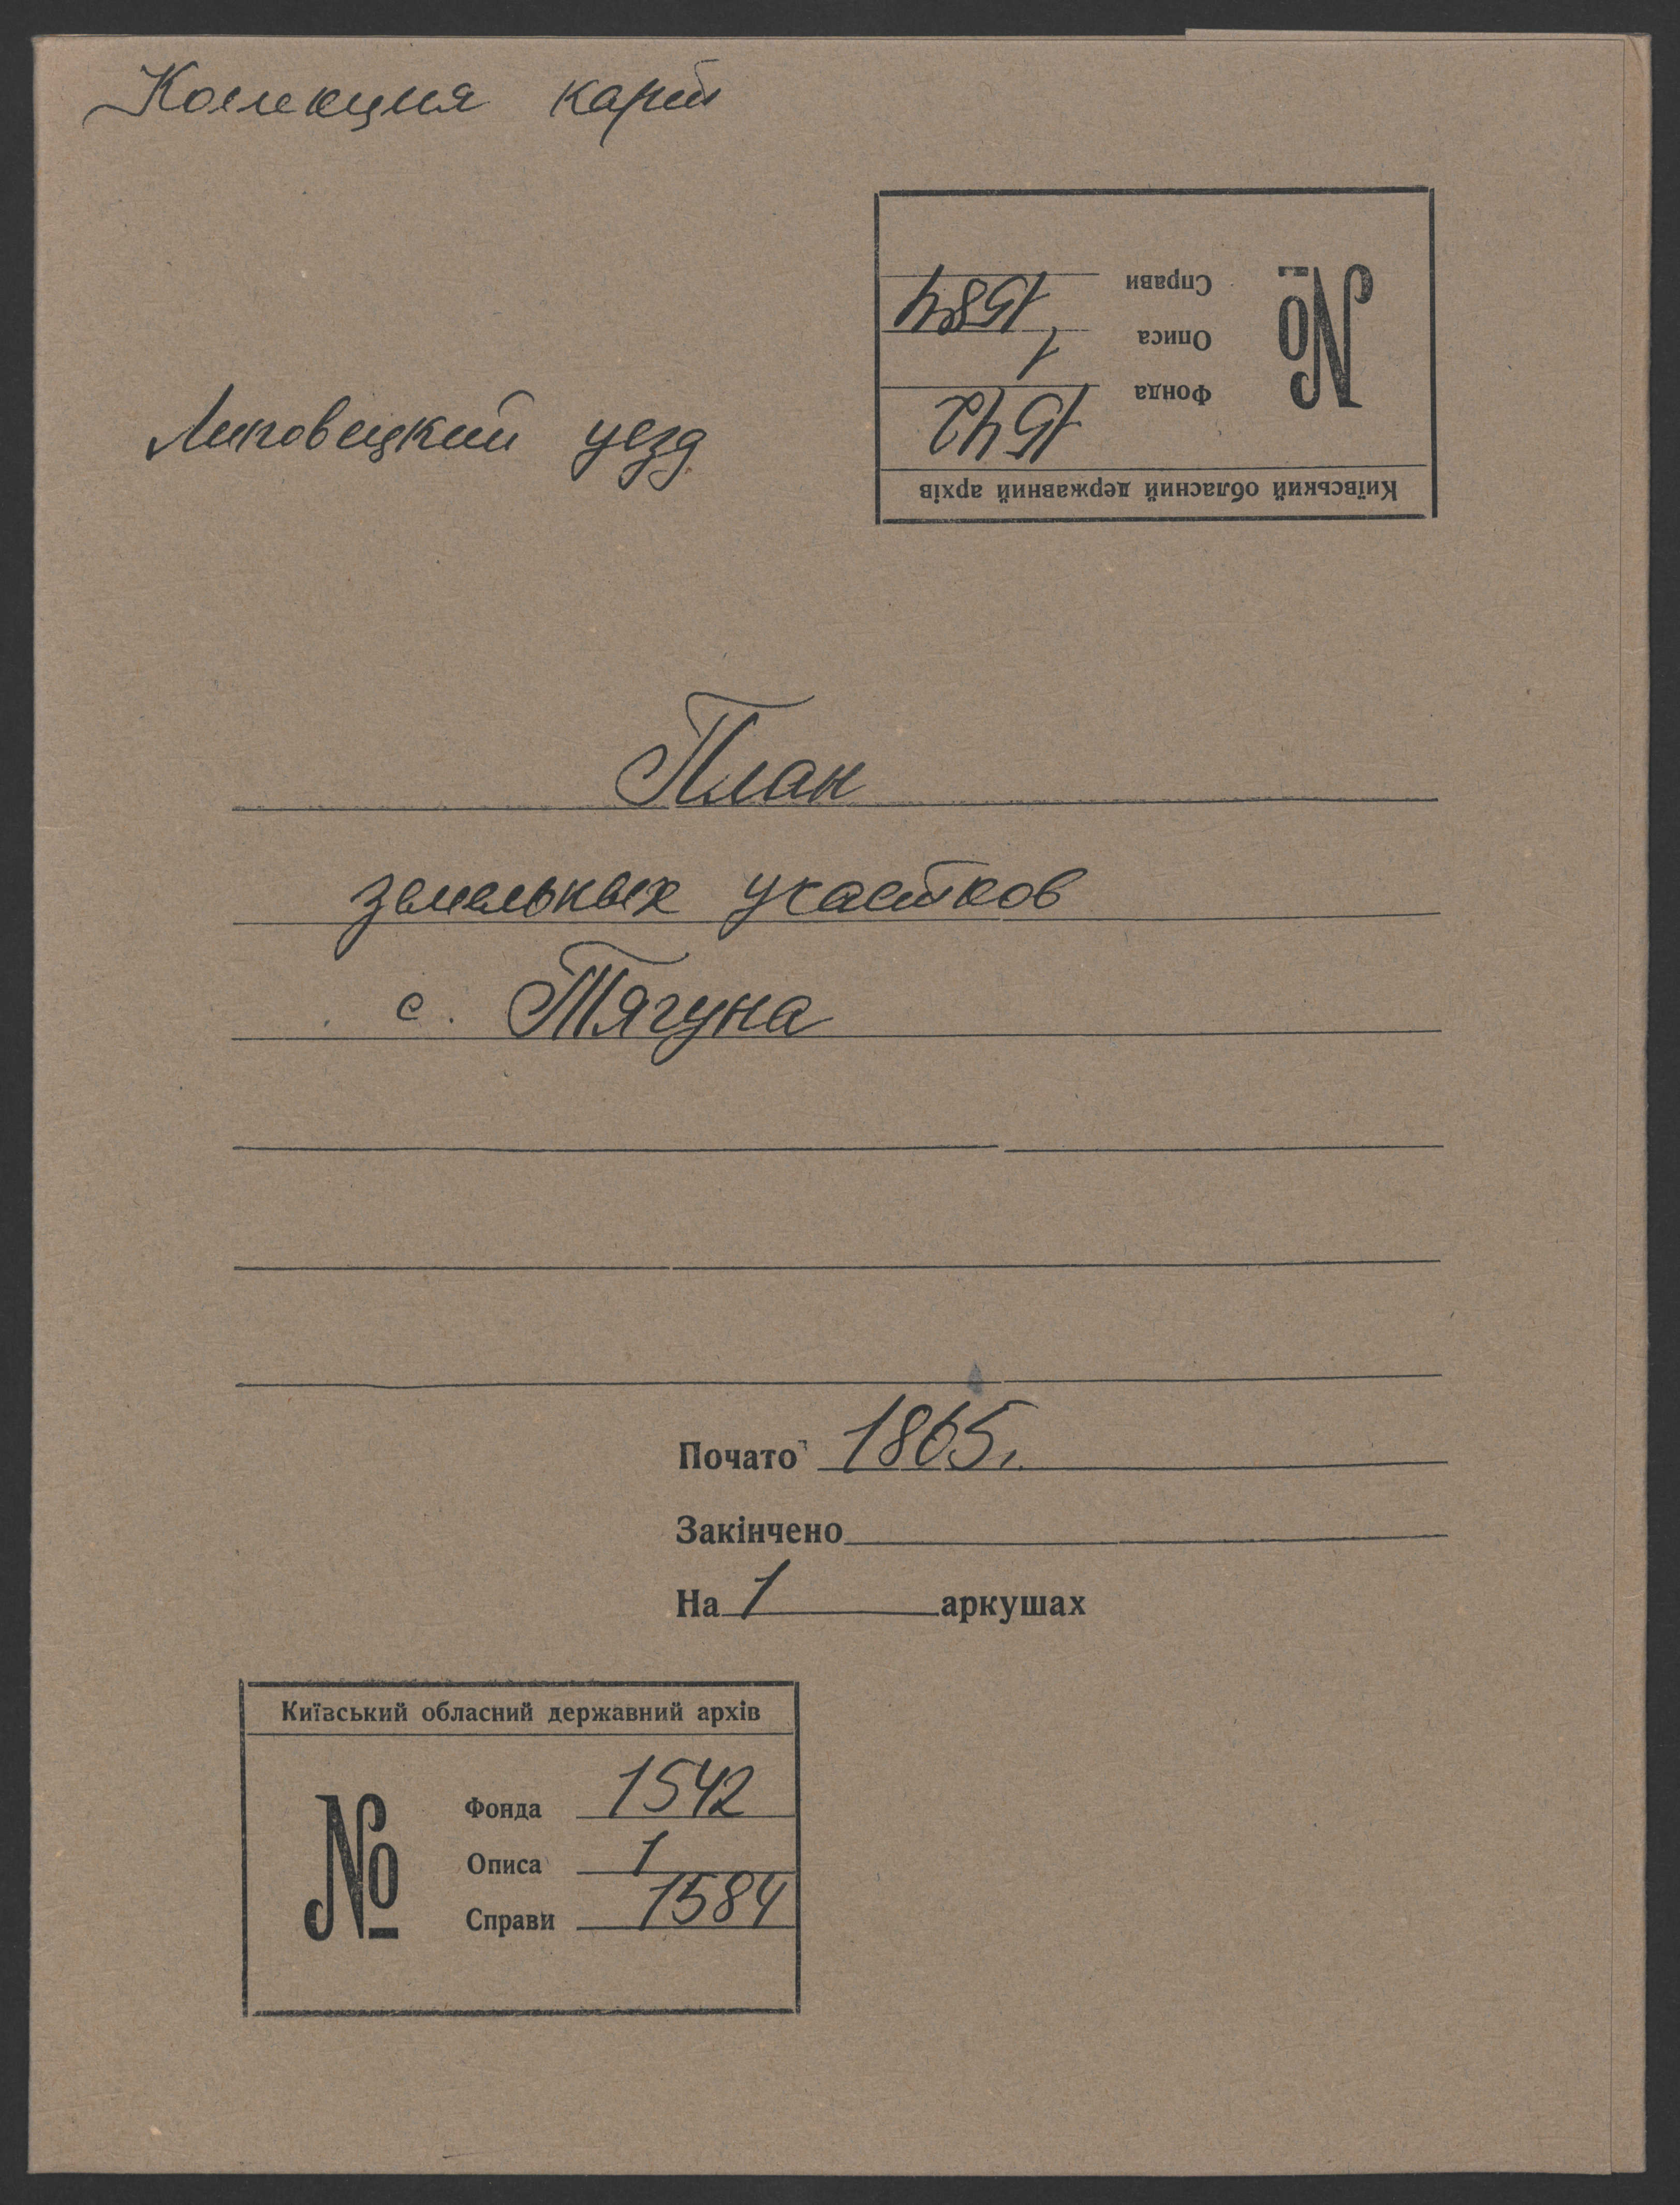 Коллекция карт
Справи 1584
Описа 1
Фонда 1542
Київський обласний державний архів
№
Липовецкий уезд
План
земельных участков
с. Тягуна
Почато 1865г.
Закінчено
На 1 аркушах
Київський обласний державний архів
№
Фонда 1542
Описа 1
Справи 1584